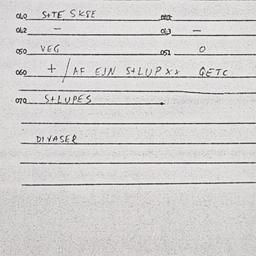 040 S+TE SKSE 041
042 - 043 -
050 VEG 051 0
060 + / AF EJN S+LUP XX GETC
070 S+LUPES
DIVASER